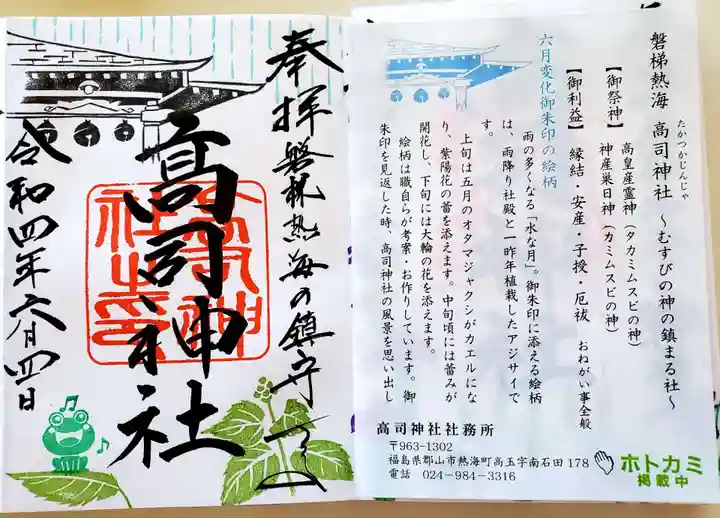 奉拝 磐梯熱海の鎮守
高司神社
令和四年六月四日
磐梯熱海 高司神社 ～むすびの神の鎮まる社～
たかつかじんじゃ
【御祭神】 高皇産霊神（タカミムスビの神）
神産巣日神（カミムスビの神）
【御利益】 縁結・安産・子授・厄祓 おねがい事全般
六月変化御朱印の絵柄
雨の多くなる「水な月」。御朱印に添える絵柄
は、雨降り社殿と一昨年植栽したアジサイで
す。
上旬は五月のオタマジャクシがカエルにな
り、紫陽花の蕾を添えます。中旬頃には蕾みが
開花し、下旬には大輪の花を添えます。
絵柄は職自らが考案・お作りしています。御
朱印を見返した時、高司神社の風景を思い出し
高司神社社務所
〒963-1302
福島県郡山市熱海町高玉字南石田178
電話 024-984-3316
ホトカミ
掲載中